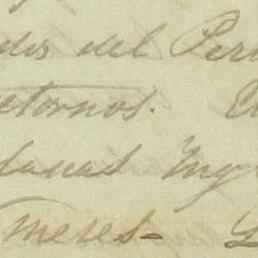 dos del Per
etornos. E
lanas Ing
meses -